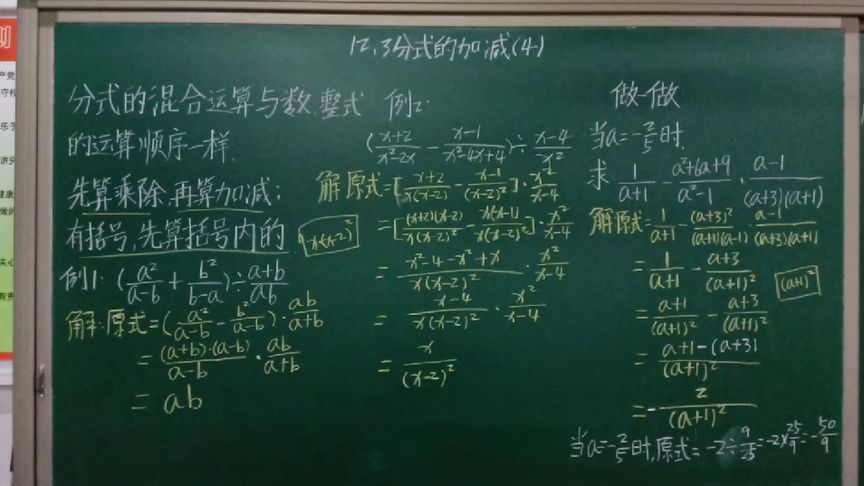 12.3分式的加减(4)
分式的混合运算与数.整式
的运算顺序一样.
先算乘除,再算加减;
有括号,先算括号内的
例1: (a²/(a-b) + b²/(b-a)) ÷ (a+b)/(ab)
解:原式=(a²/(a-b) - b²/(a-b))·ab/(a+b)
= (a+b)·(a-b)/(a-b) · ab/(a+b)
= ab
例2:
((x+2)/(x²-2x) - (x-1)/(x²-4x+4)) ÷ (x-4)/x²
解原式=[(x+2)/(x(x-2)) - (x-1)/(x-2)²]·x²/(x-4)
x(x-2)²
=[(x+2)(x-2)/(x(x-2)²) - x(x-1)/(x(x-2)²)]·x²/(x-4)
= (x²-4-x²+x)/(x(x-2)²) · x²/(x-4)
= (x-4)/(x(x-2)²) · x²/(x-4)
= x/(x-2)²
做一做
当a=-2/5时.
求 1/(a+1) - (a²+6a+9)/(a²-1) · (a-1)/((a+3)(a+1))
解原式=1/(a+1) - (a+3)²/((a+1)(a-1)) · (a-1)/((a+3)(a+1))
= 1/(a+1) - (a+3)/(a+1)²
(a+1)²
= (a+1)/(a+1)² - (a+3)/(a+1)²
= (a+1-(a+3))/(a+1)²
= -2/(a+1)²
当a=-2/5时,原式=-2÷9/25=-2×25/9=-50/9
则
产党
守校
乐于
讲究
健康
做的
关心
有责